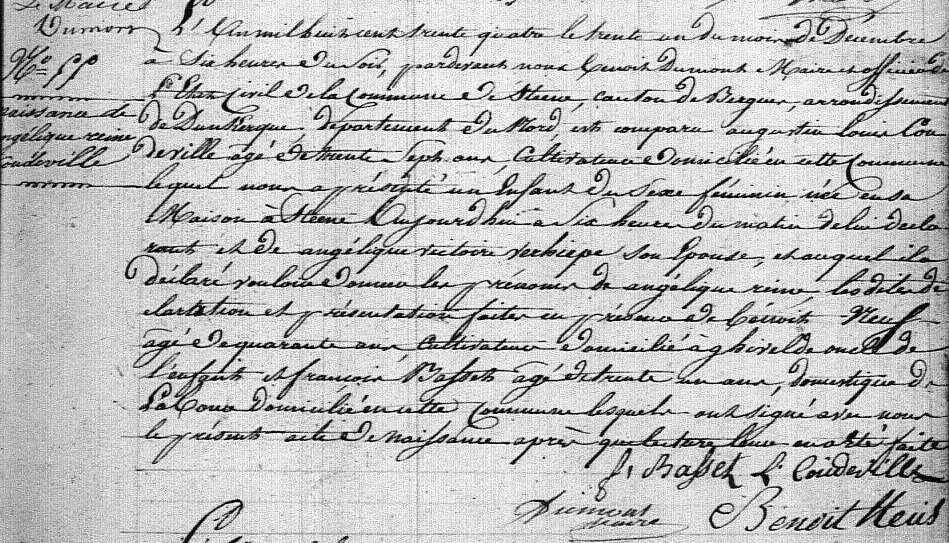 Le Maire
Dumont
No 55
naissance de
angélique reine
Coudeville
L'An mil huit cent trente quatre le trente un du mois de Décembre
à Six heures du Soir, pardevant nous Benoit Dumont Maire et officier de
l'Etat Civil de la Commune de Steene, canton de Bergues, arrondissement
de Dunkerque, département du Nord, est comparu augustin Louis Cou
deville âgé de trente Sept ans Cultivateur domicilié en cette Commune
lequel nous a présenté un Enfant du Sexe féminin née en sa
Maison à Steene Aujourd'hui à Six heures du matin de lui décla
rant et de angélique victoire verhiepe son Epouse, et auquel il a
déclaré vouloir donner les prénoms de angélique reine les dites dé
claration et présentation faites en présence de Benoit Heus
âgé de quarante ans, Cultivateur domicilié à ghivelde oncle de
l'enfant et francois Basset âgé de trente un ans, domestique de
Labour Domicilié en cette Commune lesquels ont signé avec nous
le présent acte de naissance après que lecture leur en a été faite
f. Basset L. Coudeville
Dumont
maire
Benoit Heus